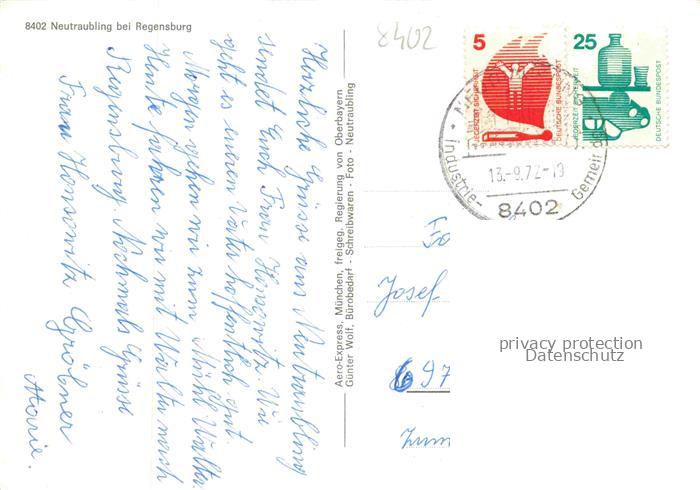 8402 Neutraubling bei Regensburg
8402
5
JEDERZEIT SICHERHEIT
DEUTSCHE BUNDESPOST
25
JEDERZEIT SICHERHEIT
DEUTSCHE BUNDESPOST
Industrie-
Gemeinde
13.-9.72-19
8402
Herzliche Grüsse aus Neutraubling
sendet Euch Frau Honowitz. Wie
geht es eurem Vater hoffentlich gut.
Morgen gehen wir zum Walter
Heute fahren wir mit Walter nach
Regensburg. Nochmals Grüsse
Frau Honowitz Gröbner
Marie.
Aero-Express, München, freigeg. Regierung von Oberbayern
Günter Wolf, Bürobedarf - Schreibwaren - Foto - Neutraubling
Josef
697
Zum
privacy protection
Datenschutz